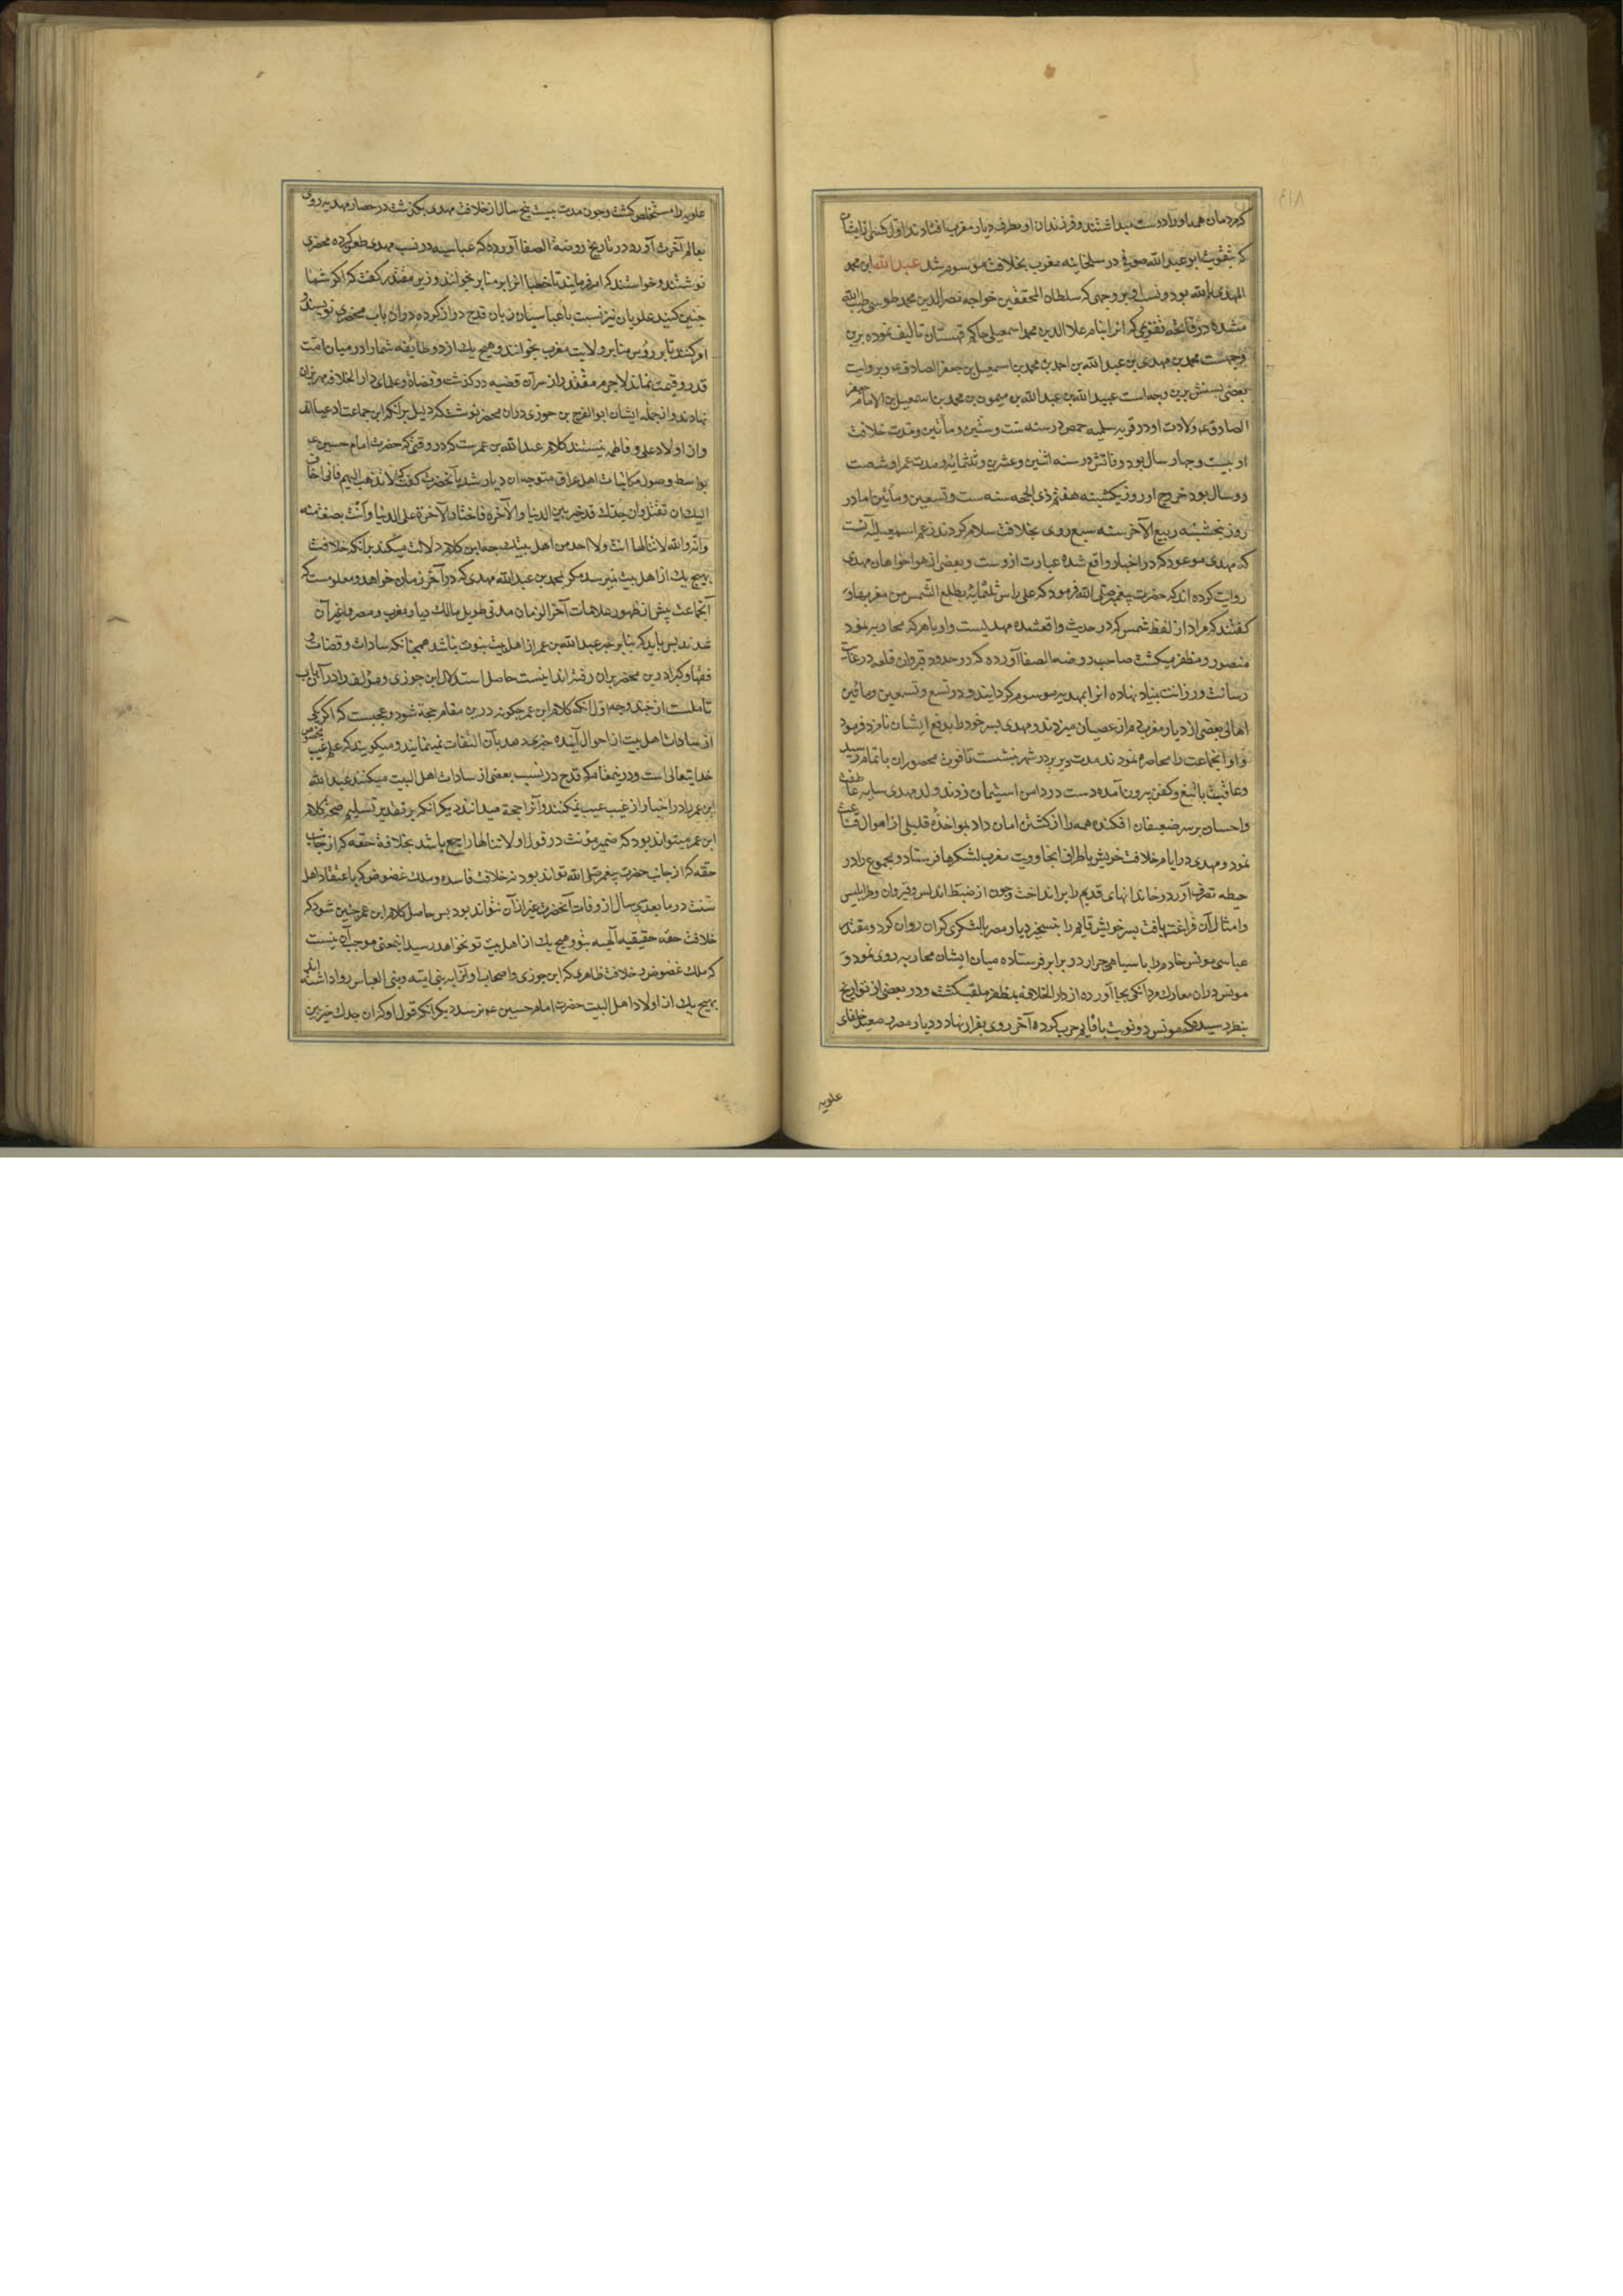 که مردمان همه او را دوست میداشتند و فرزندان او بطرف دیار مغرب افتادند اول کسی از ایشان
که بتقویت ابو عبد الله صوفی در سلخمایه مغرب بخلافت موسوم شد عبد الله ابن محمد
المهدی بالله بود و نسب او بر وجهی که سلطان المحققین خواجه نصیر الدین محمد طوسی طاب الله
مشده در فاتحه که انرا بنام علا الدین محمد اسمعیلی حاکم قهستان تالیف نموده برین
وجهست محمد بن مهدی بن عبد الله بن احمد بن محمد بن اسمعیل بن جعفر الصادق ع و بروایت
بعضی نسبش برین وجه است عبید الله بن عبد الله بن میمون بن محمد بن اسمعیل بن الامام جعفر
الصادق ع ولادت او در قریه سلمیه حمص در سنه ست و ستین و مأتین و مدت خلافت
او بیست و چهار سال بود و فاتش در سنه اثنین و عشرین و ثلثمایه و مدت عمر او شصت
دو سال بود خروج او روز یکشبنه هفتم ذی الحجه سنه ست و تسعین و مأتین اما در
روز پنجشنبه ربیع الآخر سنه سبع روی بخلافت سلام کردند زعم اسمعیلیه آنست
که مهدی موعود که در اخبار واقع شده عبارت ازوست و بعضی از هوا خواهان مهدی
روایت کرده اند که حضرت پیغمبر صلی الله فرمود که علی راس ثلثمایه یطلع الشمس من مغربها و
کفتند که مراد از لفظ شمس که در حدیث واقعشده مهدیست و او با هر که محاربه نمود
منصور و مظفر میکشت صاحب روضه الصفا آورده که در حدود قیروان قلعه در غایت
رسانت و رزانت بنیاد نهاده انرا بمهدیه موسوم کردایند و در تسع و تسعین و مأتین
اهالی بعضی از دیار مغرب دم از عصیان میزدند و مهدی پسر خود را بدفع ایشان نامزد فرمود
و او انجماعت را محاصره نمودند مدت دیر بر در شهر نشست تا قوت محصوران باتمام رسید
و عاقبت با تیغ و کفن بیرون آمده دست در دامن استیمان زدند ولد مهدی سایه عاطفت
و احسان بر سر ضعیفان افکنده همه را از کشتن امان داد بمواخذه قلیلی از اموال قناعت
نمود و مهدی در ایام خلافت خویش باطراف ولایت مغرب لشکرها فرستاد و مجموع را در
حیطه تصرف آورد و خاندانهای قدیم را برانداخت و چون از ضبط اندلس و قیروان و طرابلس
و امثال آن فراغت یافت پسر خویش قایم را بتسخیر دیار مصر با لشکری کران روان کرد و مقتدر
عباسی مونس خادم را با سپاهی جرار در برابر فرستاده میان ایشان محاربه روی نمود و
مونس دران معارک مردانکی بجا آورده از دار الخلافه بمظفر ملقب کشت و در بعضی از تواریخ
بنظر رسیده که مونس دو نوبت با قایم حرب کرده آخر روی بفرار نهاد و دیار مصر خلفای
علویه
علویه را مستخلص کشت و چون مدت بیست پنج سال از خلافت مهدی بکذشت در حصار مهدیه روی
بعالم آخرت آورد در تاریخ روضة الصفا آورده که عباسیه در نسب مهدی طعن کرده محضری
نوشتند و خواستند که امر فرمایند تا خطبا انرا بر منابر بخوانند وزیر مقتدر کفت که اکر شما
چنین کنید علویان نیز نسبت با عباسیان زبان قدح دراز کرده دران باب محضری نویسند و
امر کنند تا بر رؤس منابر ولایت مغرب بخوانند و هیچ یک از دو طایفه شما را در میان امت
قدر و قیمت نماند لاجرم مقتدر از سر آن قضیه در کذشت و قضاة و علمای دار الخلافه مهر بران
نهادند و از جمله ایشان ابو الفرج بن جوزی دران محضر نوشت که دلیل برانکه این جماعت ادعیااند
و از اولاد علی و فاطمه نیستند کلام عبد الله بن عمر ست که در وقتی که حضرت امام حسین ع
بواسطه وصول مکاتبات اهل عراق متوجه ان دیار شد بآنحضرت کفت که لا تذهب الیهم فانی اخاف
الیک ان تقتل وان جدک قد خیر بین الدنیا والآخرة فاختار الآخرة علی الدنیا وأنت بضعة منه
وانه والله لا تنالها انت ولا احد من اهل بیتک چه این کلام دلالت میکند برانکه خلافت
بهیچ یک از اهل بیت نمیرسد مکر بمحمد بن عبد الله مهدی که در آخر زمان خواهد و معلومست که
آنجماعت پیش از ظهور علامات آخر الزمان مدتی طویل مالک دیار مغرب و مصر و غیر آن
شدند پس باید که بنا بر خبر عبد الله بن عمر از اهل بیت نبوت نباشد همچنانکه سادات و قضات و
فقها و کبرا درین محضر بران رفته اند اینست حاصل استدلال ابن جوزی و مؤلف را در آن باب
تاملست از چند وجه اول انکه کلام ابن عمر چکونه درین مقام حجة شود و عجبست که اکر یکی
از سادات اهل بیت از احوال آینده خبری دهد بآن التفات نمینمایند و میکویند که علم غیب مخصوص
خدایتعالی است و درینمقام که قدح در نسب بعضی از سادات اهل البیت میکنند عبد الله
ابن عمر را در اخبار از غیب عیب نمیکنند و آنرا حجة میدانند دیکر انکه بر تقدیر تسلیم صحة کلام
ابن عمر میتواند بود که ضمیر مؤنث در قول او لا تنالها راجع باشد بخلافة حقه که از جانب
حقه که از جانب حضرت پیغمبر صلی الله تواند بود نه خلافت فاسده و ملک عضوض که باعتقاد اهل
سنت در ما بعد سی سال از وفات آنحضرت غیر از آن نتواند بود پس حاصل کلام ابن عمر چنین شود که
خلافت حقه حقیقیه آلهیه بتو و هیچ یک از اهل بیت تو نخواهد رسید اینمعنی موجب آن نیست
که ملک عضوض و خلافت ظاهری که ابن جوزی و اصحاب او آنرا به بنی امیه و بنی العباس روا داشته اند
بهیچ یک از اولاد اهل البیت حضرت امام حسین ع نرسد دیکر انکه قول او که ان جدک خیر بین